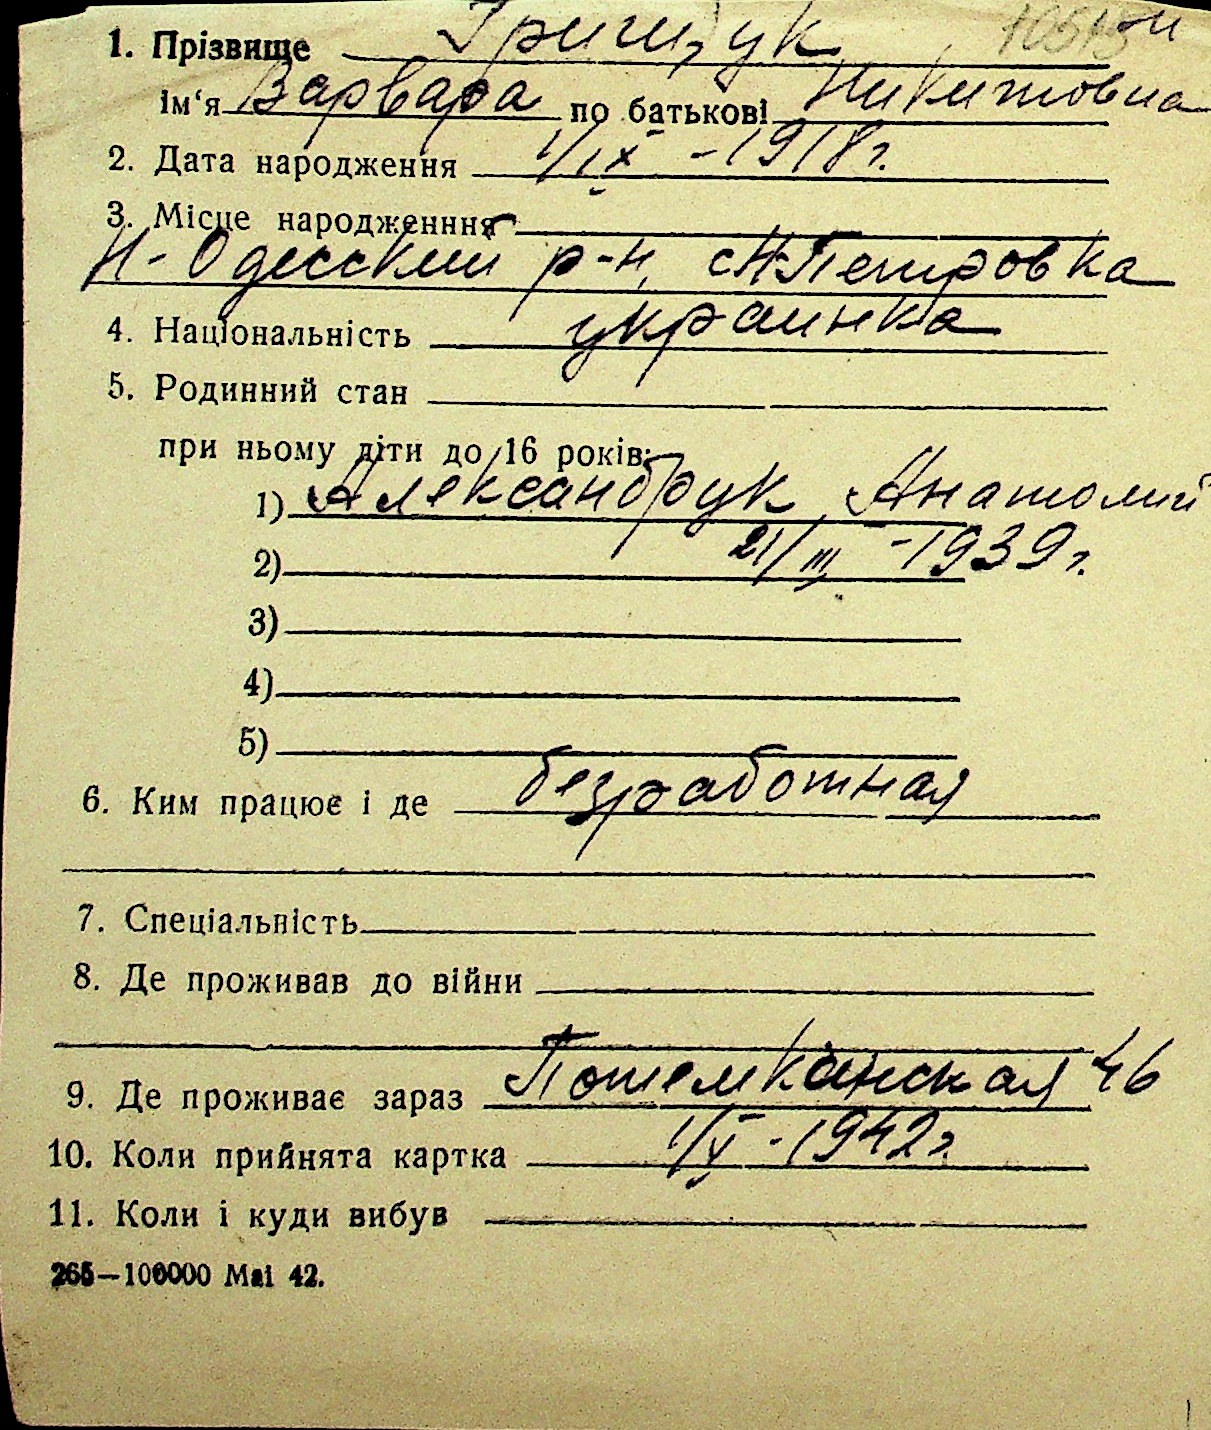 1. Прізвище Грищук
Ім‘я Варвара по батькові Никитовна
2. Дата народження 1/IX - 1918 г.
3. Місце народженння
Н-Одесский р-н, с Н-Петровка
4. Національність украинка
5. Родинний стан
при ньому діти до 16 років:
1) Александрук Анатолий
2) 21/III - 1939 г.
3)
4)
5)
6. Ким працює і де безработная
7. Спеціальність
8. Де проживав до війни
9. Де проживає зараз Потемкинская 46
10. Коли прийнята картка 1/V - 1942 г.
11. Коли і куди вибув
265—100000 Mai 42.